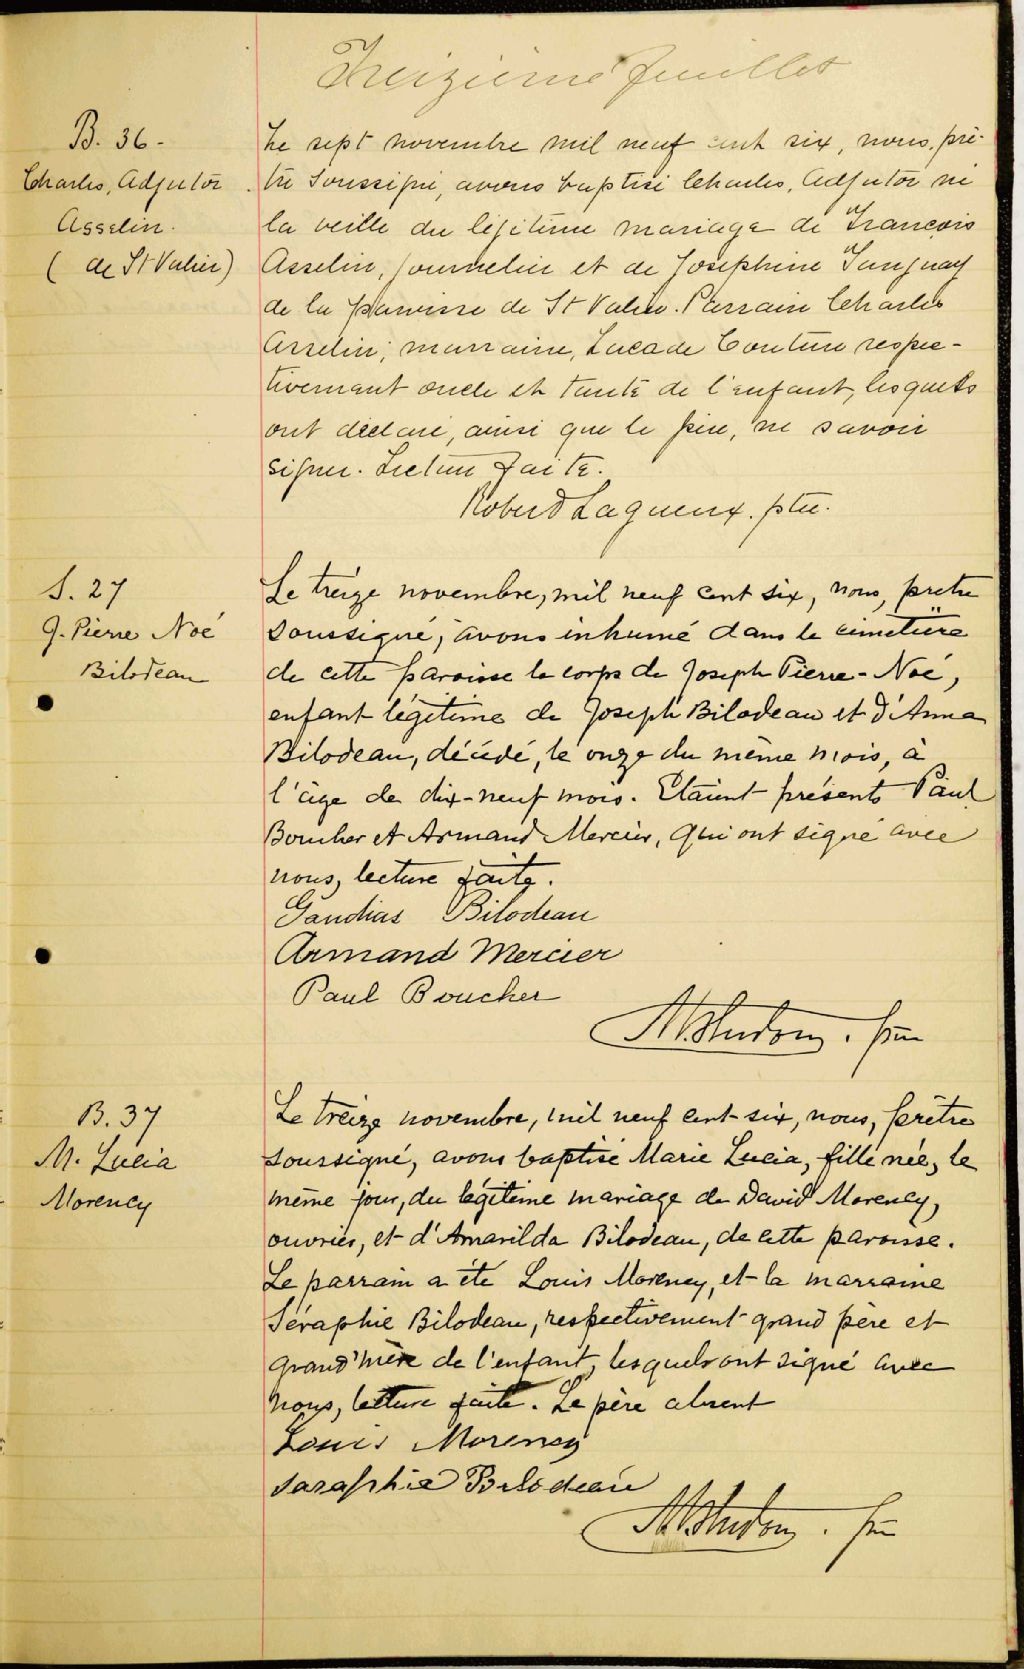 Treizième feuillet
B. 36 -
Charles, Adjutor
Asselin.
( de St Valier)
Le sept novembre mil neuf cent six, nous, prê-
tre soussigné, avons baptisé Charles, Adjutor né
la veille du légitime mariage de François
Asselin, journalier et de Joséphine Tanguay
de la paroisse de St Valier. Parrain Charles
Asselin; marraine, Couture respec-
tivemant oncle et tante de l'enfant, lesquels
ont déclaré, ainsi que le père, ne savoir
signer. Lecture faite.
Robert Lagueux. ptre.
S. 27
J. Pierre Noé
Bilodeau
Le treize novembre, mil neuf cent six, nous, prêtre
soussigné, avons inhumé dans le cimetière
de cette paroisse le corps de Joseph Pierre-Noé,
enfant légitime de Joseph Bilodeau et d'Anna
Bilodeau, décédé, le onze du même mois, à
l'âge de dix-neuf mois. Etaient présents Paul
Boucher et Armand Mercier, qui ont signé avec
nous, lecture faite.
Gaudias Bilodeau
Armand Mercier
Paul Boucher
B. 37
M. Lucia
Morency
Le treize novembre, mil neuf cent-six, nous, prêtre
soussigné, avons baptisé Marie Lucia, fille née, le
même jour, du légitime mariage de David Morency,
ouvrier, et d'Amarilda Bilodeau, de cette paroisse.
Le parrain a été Louis Morency, et la marraine
Séraphie Bilodeau, respectivement grand père et
grand'mère de l'enfant, lesquels ont signé avec
nous, lecture faite. Le père absent
Louis Morency
Saraphie Bilodeau